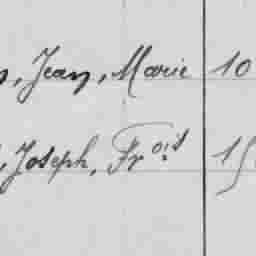 , Jean, Marie 10
, Joseph, Frois 15